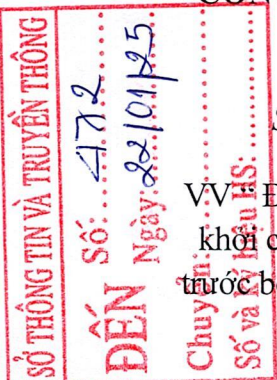 SỞ THÔNG TIN VÀ TRUYỀN THÔNG
ĐẾN
Số: 472
Ngày: 22/01/25
Chuyển:
Số và ký hiệu HS:
VV " Đ
khỏi c
trước b